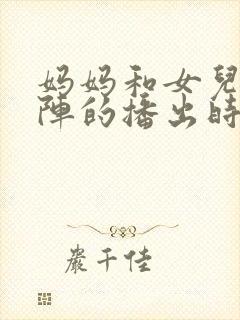 妈妈和女兒
陣的播出時
嚴千佳